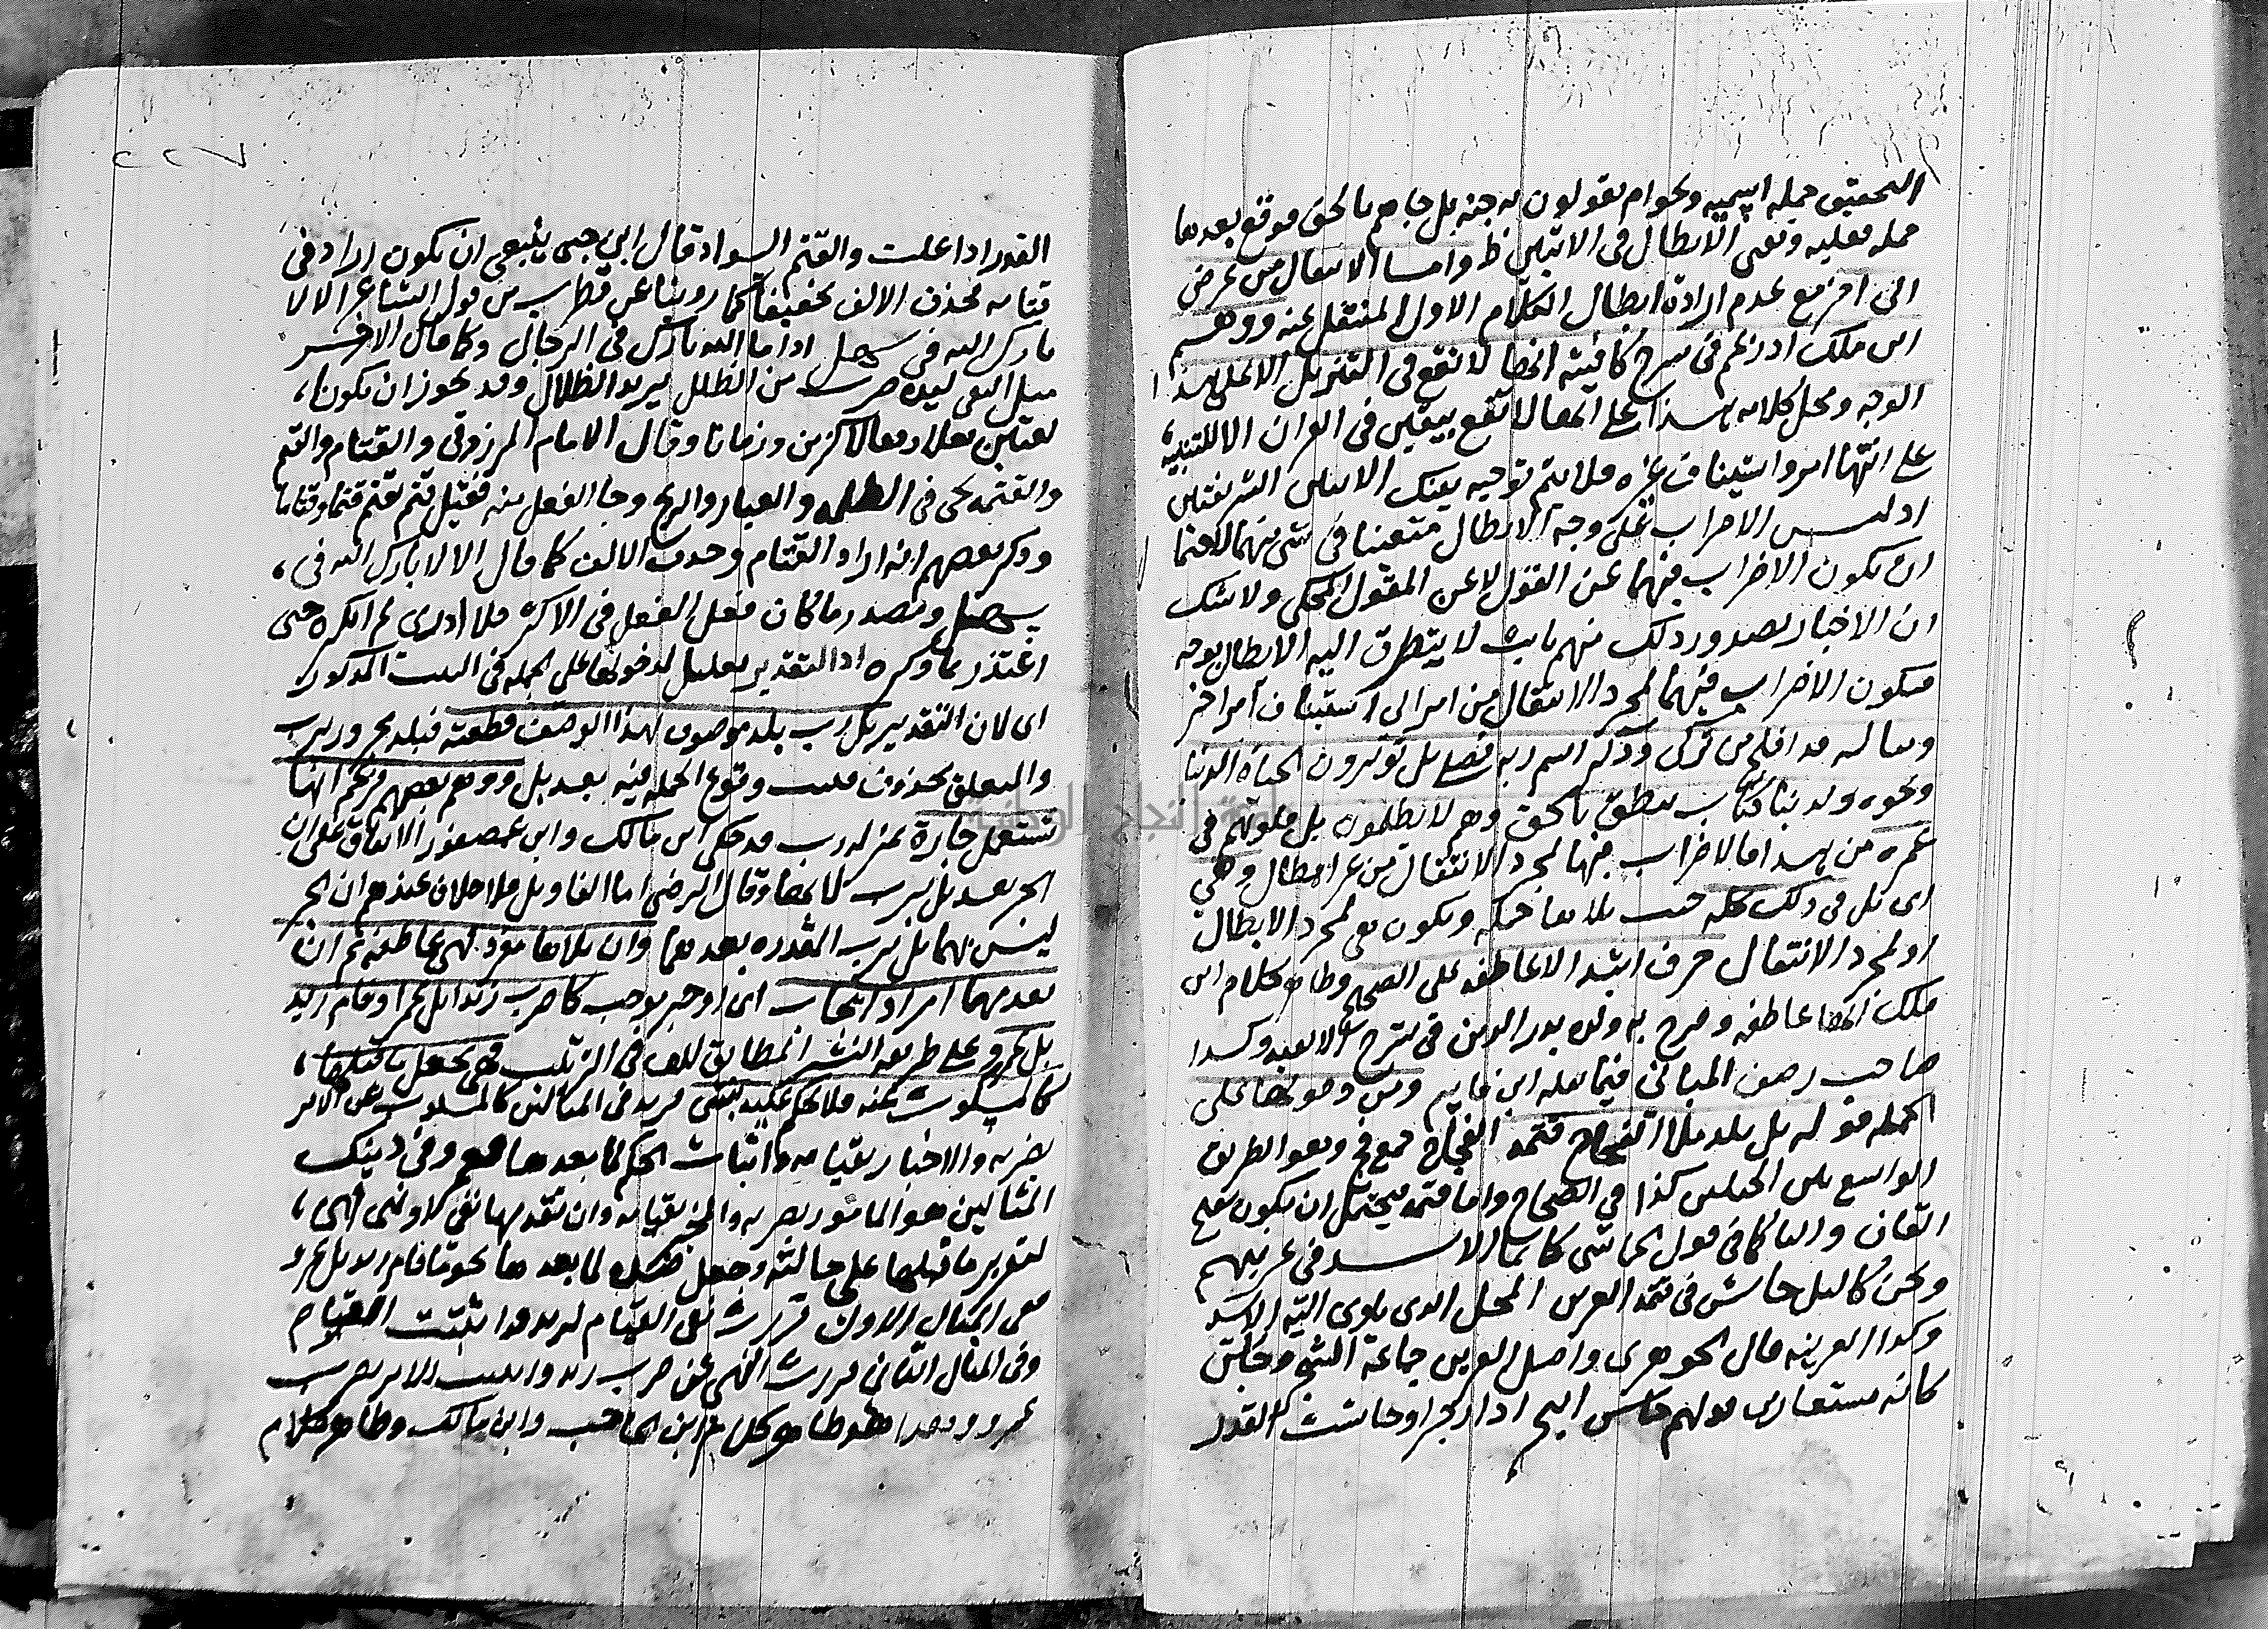 التحقيق جملة اسمية ونحو ام يقولون به جنة بل جاءهم بالحق فوقع بعدها
جملة فعلية ومعنى الابطال في الايتين ظ واما الانتقال من غرض
الى اخر مع عدم ارادة ابطال الكلام الاول المنتقل عنه ووهم
ابن ملك اذ زعم في شرح كافيته انها لا تقع في التنزيل الا على هذا
الوجه وحمل كلامه هذا على انها لا تقع بيقين في القران الا للتنبيه
على انتهاء امر واستيناف غيره فلا يتم توجيه بتينك الايتين الشريفتين
اذ ليس الاضراب على وجه الابطال متعينا في شي منهما لاحتما
ان يكون الاضراب فيهما عن القول لا عن المقول المحكي ولا شك
ان الاخبار بصدور ذلك منهم ثابت لا يتطرق اليه الابطال بوجه
فيكون الاضراب فيهما لمجرد الانتقال من امر الى استيناف امر اخر
ومثاله قد افلح من تزكى وذكر اسم ربه فصلى بل توثرون الحياة الدنيا
ونحوه ولدينا كتاب ينطق بالحق وهم لا يظلمون بل قلوبهم في
غمرة من هذا فالاضراب فيها لمجرد الانتقال من غير ابطال وهي
اي بل في ذلك كله حيث تلاها جملة ويكون هي لمجرد الابطال
او لمجرد الانتقال حرف ابتدا لا عاطفة على الصحيح وظاهر كلام ابن
ملك انها عاطفة وصرح به ولده بدر الدين في شرح الالفية وكذا
صاحب رصف المباني فيما نقله ابن قاسم ومن دخولها على
الجملة قوله بل بلد ملء الفجاج قتمه الفجاج جمع فج وهو الطريق
الواسع بين الجبلين كذا في الصحاح واما قتمه فيحتمل ان يكون بفتح
القاف والتا كما في قول الجاشي كانما الاسد في عرينهم
ونحن كالليل جاش في قتمه العرين المحل الذي ياوي اليه الاسد
وكذا العرينة قال الجوهري واصل العرين جماعة الشجر وجاش
كانه مستعار من قولهم جاش البحر اذا زجرا وجاشت القدر
٢٢٧
القدر اذا علت والقتم السواد قال ابن جني ينبغي ان يكون اراد في
قتامه فحذف الالف تخفيفا كما روينا عن قطرب من قول الشاعر الا لا
بارك الله في سهيل اذا ما الله بارك في الرجال وكما قال الاخر
مثل النقى لبده ضرب من الطلل يريد الطلال وقد يجوز ان يكونا،
لغتين فعلا وفعالا كزمن وزمانا وقال الامام المرزوقي والقتام والقتم
والقتمة يجي في الظلمة والغبار والريح وجا الفعل منه فقيل قتم يقتم قتما وقتاما
وذكر بعضهم انه اراد القتام وحذف الالف كما قال الا لا بارك الله في،
سهيل ومصدر ما كان فعل الفعل في الاكثر فلا ادري لم انكره حتى
اعتذر بما ذكره اذا التقدير تعليل لدخولها على الجملة في البيت المذكور
اي لان التقدير بل رب بلد موصوف بهذا الوصف قطعته فبلد مجرور برب
والمتعلق محذوف فثبت وقوع الجملة فيه بعد بل ووهم بعضهم فزعم انها
تستعمل جارة بمنزلة رب قد حكى ابن مالك وابن عصفور الاتفاق على ان
الجر بعد بل برب لا بها وقال الرضي اما الفا وبل فلا خلاف عندهم ان الجر
ليس بهما بل برب المقدرة بعدهما وان تلاها مفرد فهي عاطفة ثم ان
تقدمها امر او ايجاب اي او خبر موجب كاضرب زيدا بل عمرا وقام زيد
بل عمرو على طريقة النشر المطابق للف في الترتيب فهي تجعل ما قبلها،
كالمسكوت عنه فلا يحكم عليه بشي فزيد في المثالين كالمسكوت عن الامر
بضربه والاخبار بقيامه واثبات الحكم لما بعدها فهو وفي ذينك
المثالين هو المامور بضربه والمخبر بقيامه وان تقدمها نفي او نهي فهي،
لتقرير ما قبلها على حالته وجعل ضده لما بعدها نحو ما قام زيد بل عمرو
ففي المثال الاول قررت نفي القيام لزيد واثبتت القيام
وفي المثال الثاني قررت النهي عن ضرب زيد واثبت الامر بضرب
عمرو وهذا هو ظاهر كلام ابن الحاجب وابن مالك وظاهر كلام